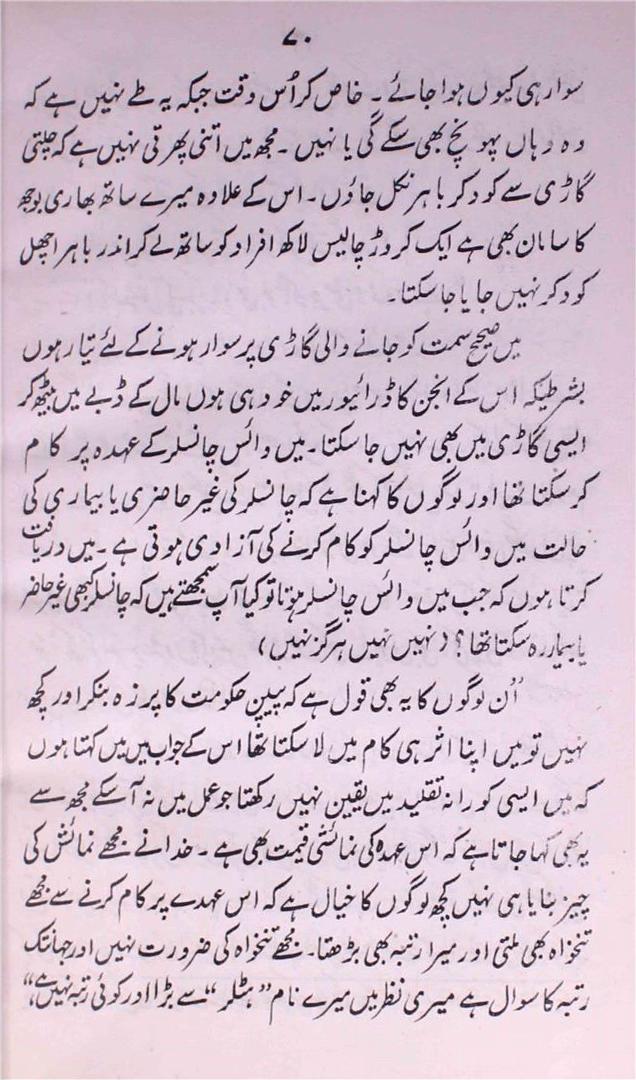 ۷۰
سوار ہی کیوں ہوا جائے ۔ خاص کر اُس وقت جبکہ یہ طے نہیں ہے کہ
وہ وہاں پہونچ بھی سکے گی یا نہیں ۔ مجھ میں اتنی پھرتی نہیں ہے کہ چلتی
گاڑی سے کود کر باہر نکل جاؤں ۔ اس کے علاوہ میرے ساتھ بھاری بوجھ
کا سامان بھی ہے ایک کروڑ چالیس لاکھ افراد کو ساتھ لے کر اندر باہر اچھل
کود کر نہیں جایا جا سکتا ۔
میں صحیح سمت کو جانے والی گاڑی پر سوار ہونے کے لئے تیار ہوں
بشرطیکہ اس کے انجن کا ڈرائیور میں خود ہی ہوں مال کے ڈبے میں بیٹھ کر
ایسی گاڑی میں بھی نہیں جا سکتا ۔ میں وائس چانسلر کے عہدہ پر کام
کر سکتا تھا اور لوگوں کا کہنا ہے کہ چانسلر کی غیر حاضری یا بیماری کی
حالت میں وائس چانسلر کو کام کرنے کی آزادی ہوتی ہے ۔ میں دریافت
کرتا ہوں کہ جب میں وائس چانسلر ہوتا تو کیا آپ سمجھتے ہیں کہ چانسلر کبھی غیر حاضر
یا بیمار رہ سکتا تھا ؟ ( نہیں نہیں ہرگز نہیں )
اُن لوگوں کا یہ بھی قول ہے کہ پیپن حکومت کا پرزہ بنکر اور کچھ
نہیں تو میں اپنا اثر ہی کام میں لا سکتا تھا اس کے جواب میں میں کہتا ہوں
کہ میں ایسی کورانہ تقلید میں یقین نہیں رکھتا جو عمل میں نہ آ سکے مجھ سے
یہ بھی کہا جاتا ہے کہ اس عہدہ کی نمائشی قیمت بھی ہے ۔ خدا نے مجھے نمائش کی
چیز بنایا ہی نہیں کچھ لوگوں کا خیال ہے کہ اس عہدے پر کام کرنے سے مجھے
تنخواہ بھی ملتی اور میرا رتبہ بھی بڑھتا ۔ مجھے تنخواہ کی ضرورت نہیں اور جہانتک
رتبہ کا سوال ہے میری نظر میں میرے نام ” ہٹلر “ سے بڑا اور کوئی رتبہ نہیں ہے “